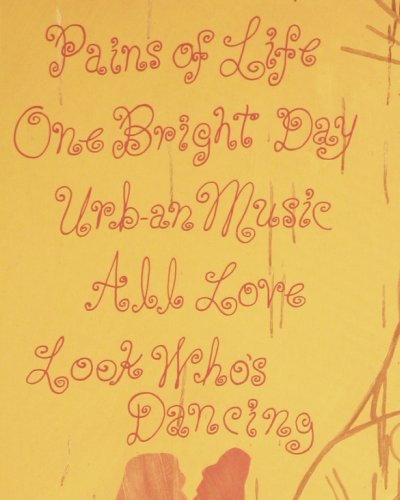 Pains of Life
One Bright Day
Urb-an Music
All Love
Look Who's
Dancing